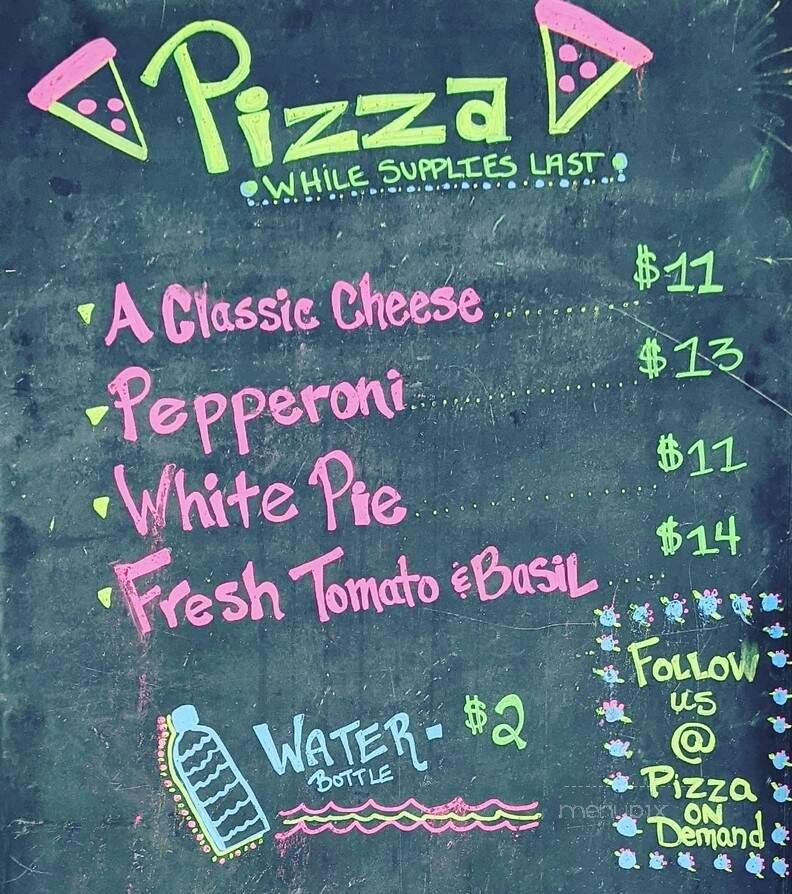 Pizza
WHILE SUPPLIES LAST
A Classic Cheese .......... $11
Pepperoni .......... $13
White Pie .......... $11
Fresh Tomato & Basil ..... $14
WATER - $2
BOTTLE
Follow
us
@
Pizza
ON
Demand
menupix